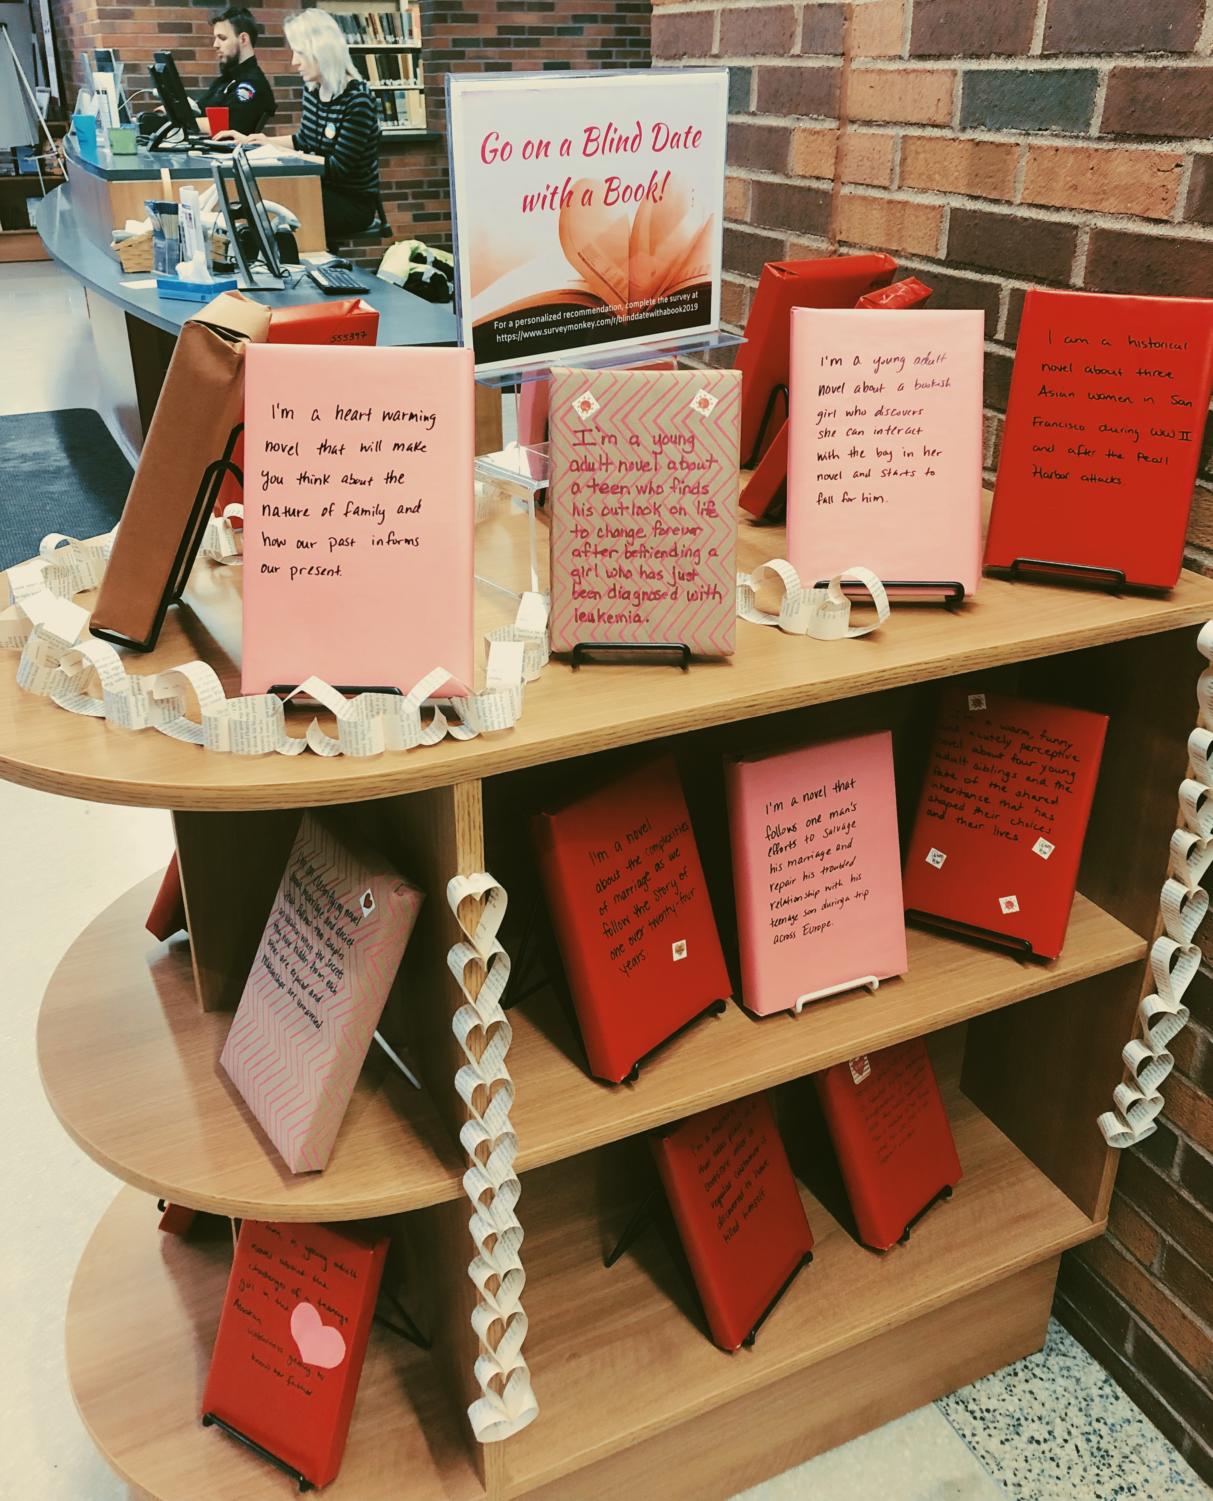 Go on a Blind Date
with a Book!
For a personalized recommendation, complete the survey at
https://www.surveymonkey.com/r/blinddatewithabook2019
555397
I'm a heart warming
novel that will make
you think about the
nature of family and
how our past informs
our present.
I'm a young
adult novel about
a teen who finds
his outlook on life
to change forever
after befriending a
girl who has just
been diagnosed with
leukemia.
I'm a young adult
novel about a bookish
girl who discovers
she can interact
with the boy in her
novel and starts to
fall for him.
I am a historical
novel about three
Asian women in San
Francisco during WW II
and after the Pearl
Harbor attacks.
I'm a novel
about the complexities
of marriage as we
follow the story of
one over twenty-four
years.
I'm a novel that
follows one man's
efforts to salvage
his marriage and
repair his troubled
relationship with his
teenage son during a trip
across Europe.
I'm a warm, funny
and acutely perceptive
novel about four young
adult siblings and the
fate of the shared
inheritance that has
shaped their choices
and their lives
novel
relationships are unraveled
regular customer is
discovered to have
killed himself
young adult
novel about the
challenges of a teenage
girl in the
Alaskan
wilderness getting to
know her father